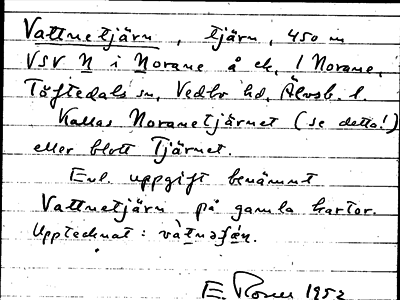 Vattnetjärn, tjärn, 450 m
VSV N i Norane å ek. / Norane,
Töftedals sn, Vedbo hd, Älvsb. l.
Kallas Noranetjärnet (se detta!)
eller blott Tjärnet.
Enl. uppgift benämnt
Vattnetjärn på gamla kartor.
Upptecknat:
E. 1952